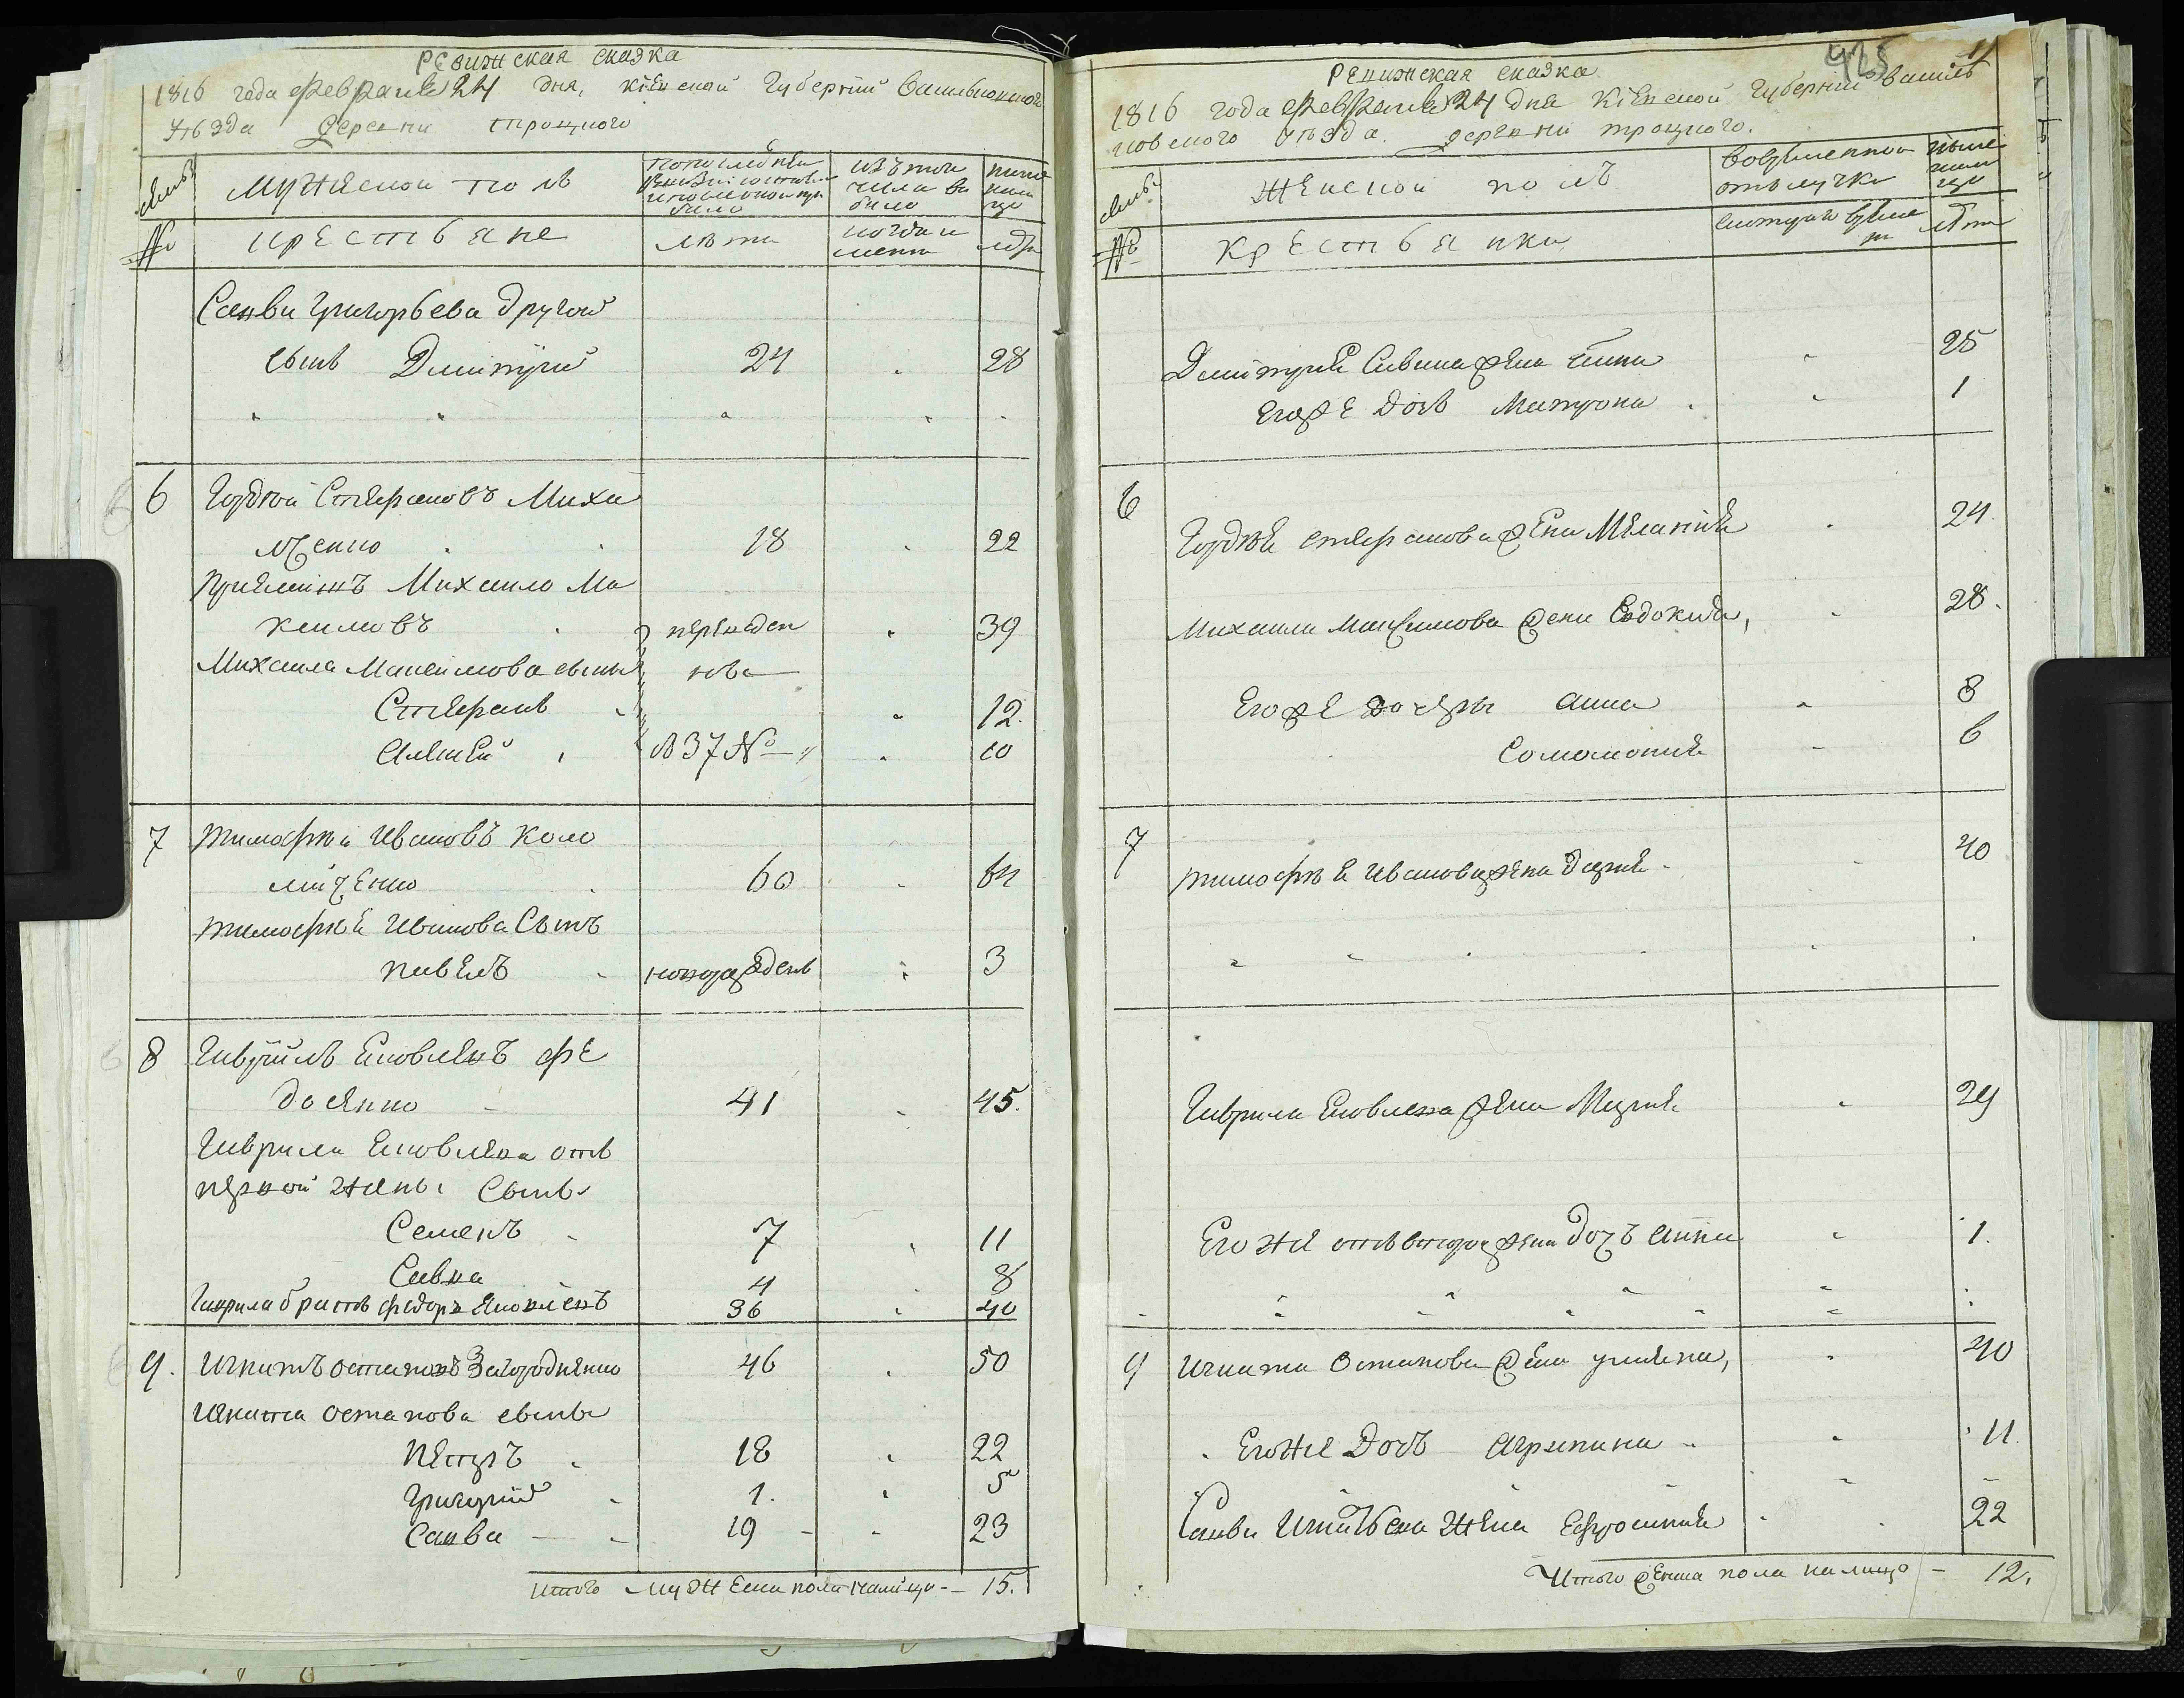 Ревижская сказка
1816 года Февраля 24 дня, Кіевской Губерніи Васильковского
Уѣзда Деревни Троцкого
Мужеской полъ
по последней ревизіи состояло и после оной прибыло
изъ того числа выбыло
ныне на лицо
№ Крестьяне
лѣта
когда и
лѣта
Саввы Григорьева другой
сынъ Дмитрий 24 28
6 Гордѣй Стефановъ Миха
лченко 18 22
Приемышъ Михайло Ма
ксимовъ переведен 39
Михайла Максимова сыны
Стефанъ 12.
Алексей 37 № 10
7 Тимофѣй Ивановъ Коло
мійченко 60 64
Тимофѣя Иванова Сынъ
Павелъ новорожденъ 3
8 Гаврійлъ Яковлевъ Фе
досенко 41 45.
Гаврила Яковлева отъ
первой жены Сыны
Семенъ 7 11
Савка 4 8
Гаврила братъ Федоръ Яковлевъ 36 40
9. Игнатъ Остаповъ Загородненко 46 50
Игната Остапова сыны
Петръ 18 22
Григорий 1. 5
Савва 19 23
Итого мужеска пола налицо - 15.
425
11
Ревижская сказка
1816 года Февраля 24 дня Кіевской Губерніи Василь
ковского Уѣзда. деревни Троцкого.
Женской полъ
во временной отлучке
ныне на лицо
№ Крестьянки
с которого времени
лѣта
Дмитрия Савина жена Анна 25
Его же дочь Матрона 1
6
Гордѣя Стефанова жена Меланія 24.
Михаила Максимова жена Евдокия, 28.
Его же дочери Анна 8
Соломонія 6
7
Тимофѣя Иванова жена Дарія 40
Гаврила Яковлева жена Марія 29
Его же отъ второй жены дочь Анна 1.
9 Игната Остапова жена Уляна, 40
Его же дочь Агрипина 11.
Саввы Игнатьева жена Ефросинія 22
Итого женска пола налицо - 12.